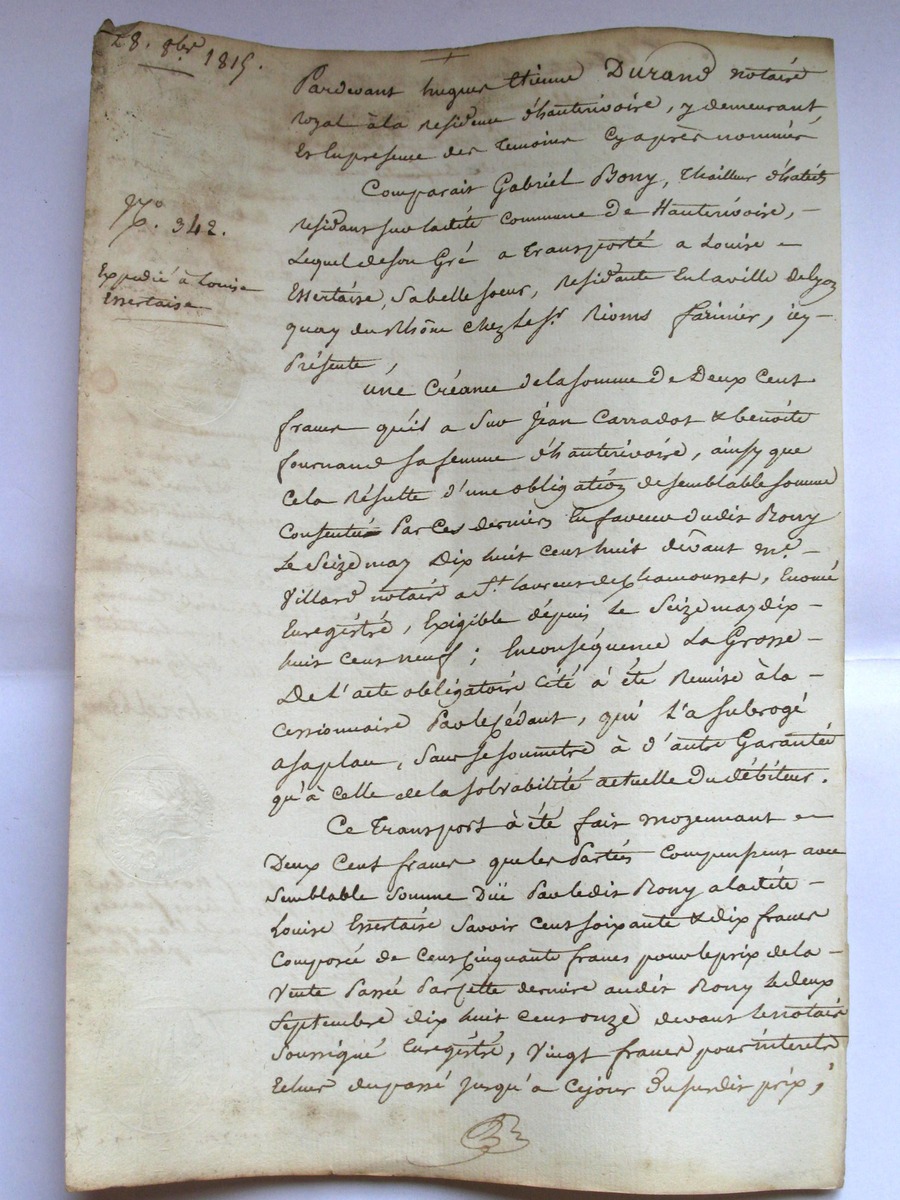 28. 8bre 1815.
Pardevant hugues Etienne Durand notaire
royal à la residence d'hauterivoire, y demeurant
Et En presence des Temoins Cy après nommés
Comparait Gabriel Rony, Thailleur d'habits
residant sur ladite Commune De Hauterivoire, -
No. 342.
Lequel de son Gré a Transporté a Louise -
Expedié à Louise
Essertaise
Essertaise, sa belle soeur, residante En la ville de Lyon
quay du Rhône chez le Sr. Rioms farinier, icy -
Présente,
une Créance de la somme de Deux Cent
francs qu'il a Sur Jean Carradot & benoite
fournand sa femme d'hauterivoire, ainsy que
Cela Résulte d'une obligation de semblable somme
Consentüe Par Ces derniers En faveur dudit Rony
Le Seize may Dix huit Cent huit devant me. -
Villard notaire a St. laurent de Chamousset,
Enregistré, Exigible dépuis le Seize may dix -
huit Cent neuf ; En conséquence La Grosse -
De l'acte obligatoire Cité à été Remise à la -
cessionnaire Par le Cédant, qui L'a subrogé
a sa place, Sans se soumettre à d'autre Garantie
qu'à Celle de la solvabilité actuelle Du débiteur.
Ce Transport à été fait moyennant -
Deux Cent francs que les Parties Compensent avec
Semblable Somme Düe Par ledit Rony a ladite -
Louise Essertaise Savoir Cent soixante & dix francs
Composée de Cent Cinquante francs pour le prix de la -
Vente Passée Par Cette derniere audit Rony le deux
Septembre dix huit Cent onze devant le notaire
Soussigné Enregistré, Vingt francs pour interets
Echus du passé jusqu'a Ce jour Du susdit prix,